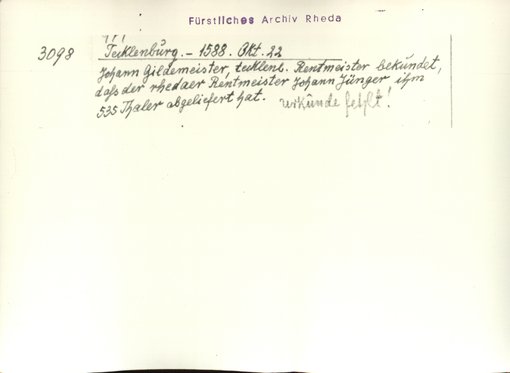 Fürstliches Archiv Rheda
3098 Tecklenburg. - 1588. Okt. 22
Johann Gildemeister, tecklenb. Rentmeister bekundet,
daſs der rhedaer Rentmeister Johann Jünger ihm
535 Thaler abgeliefert hat. Urkunde fehlt!